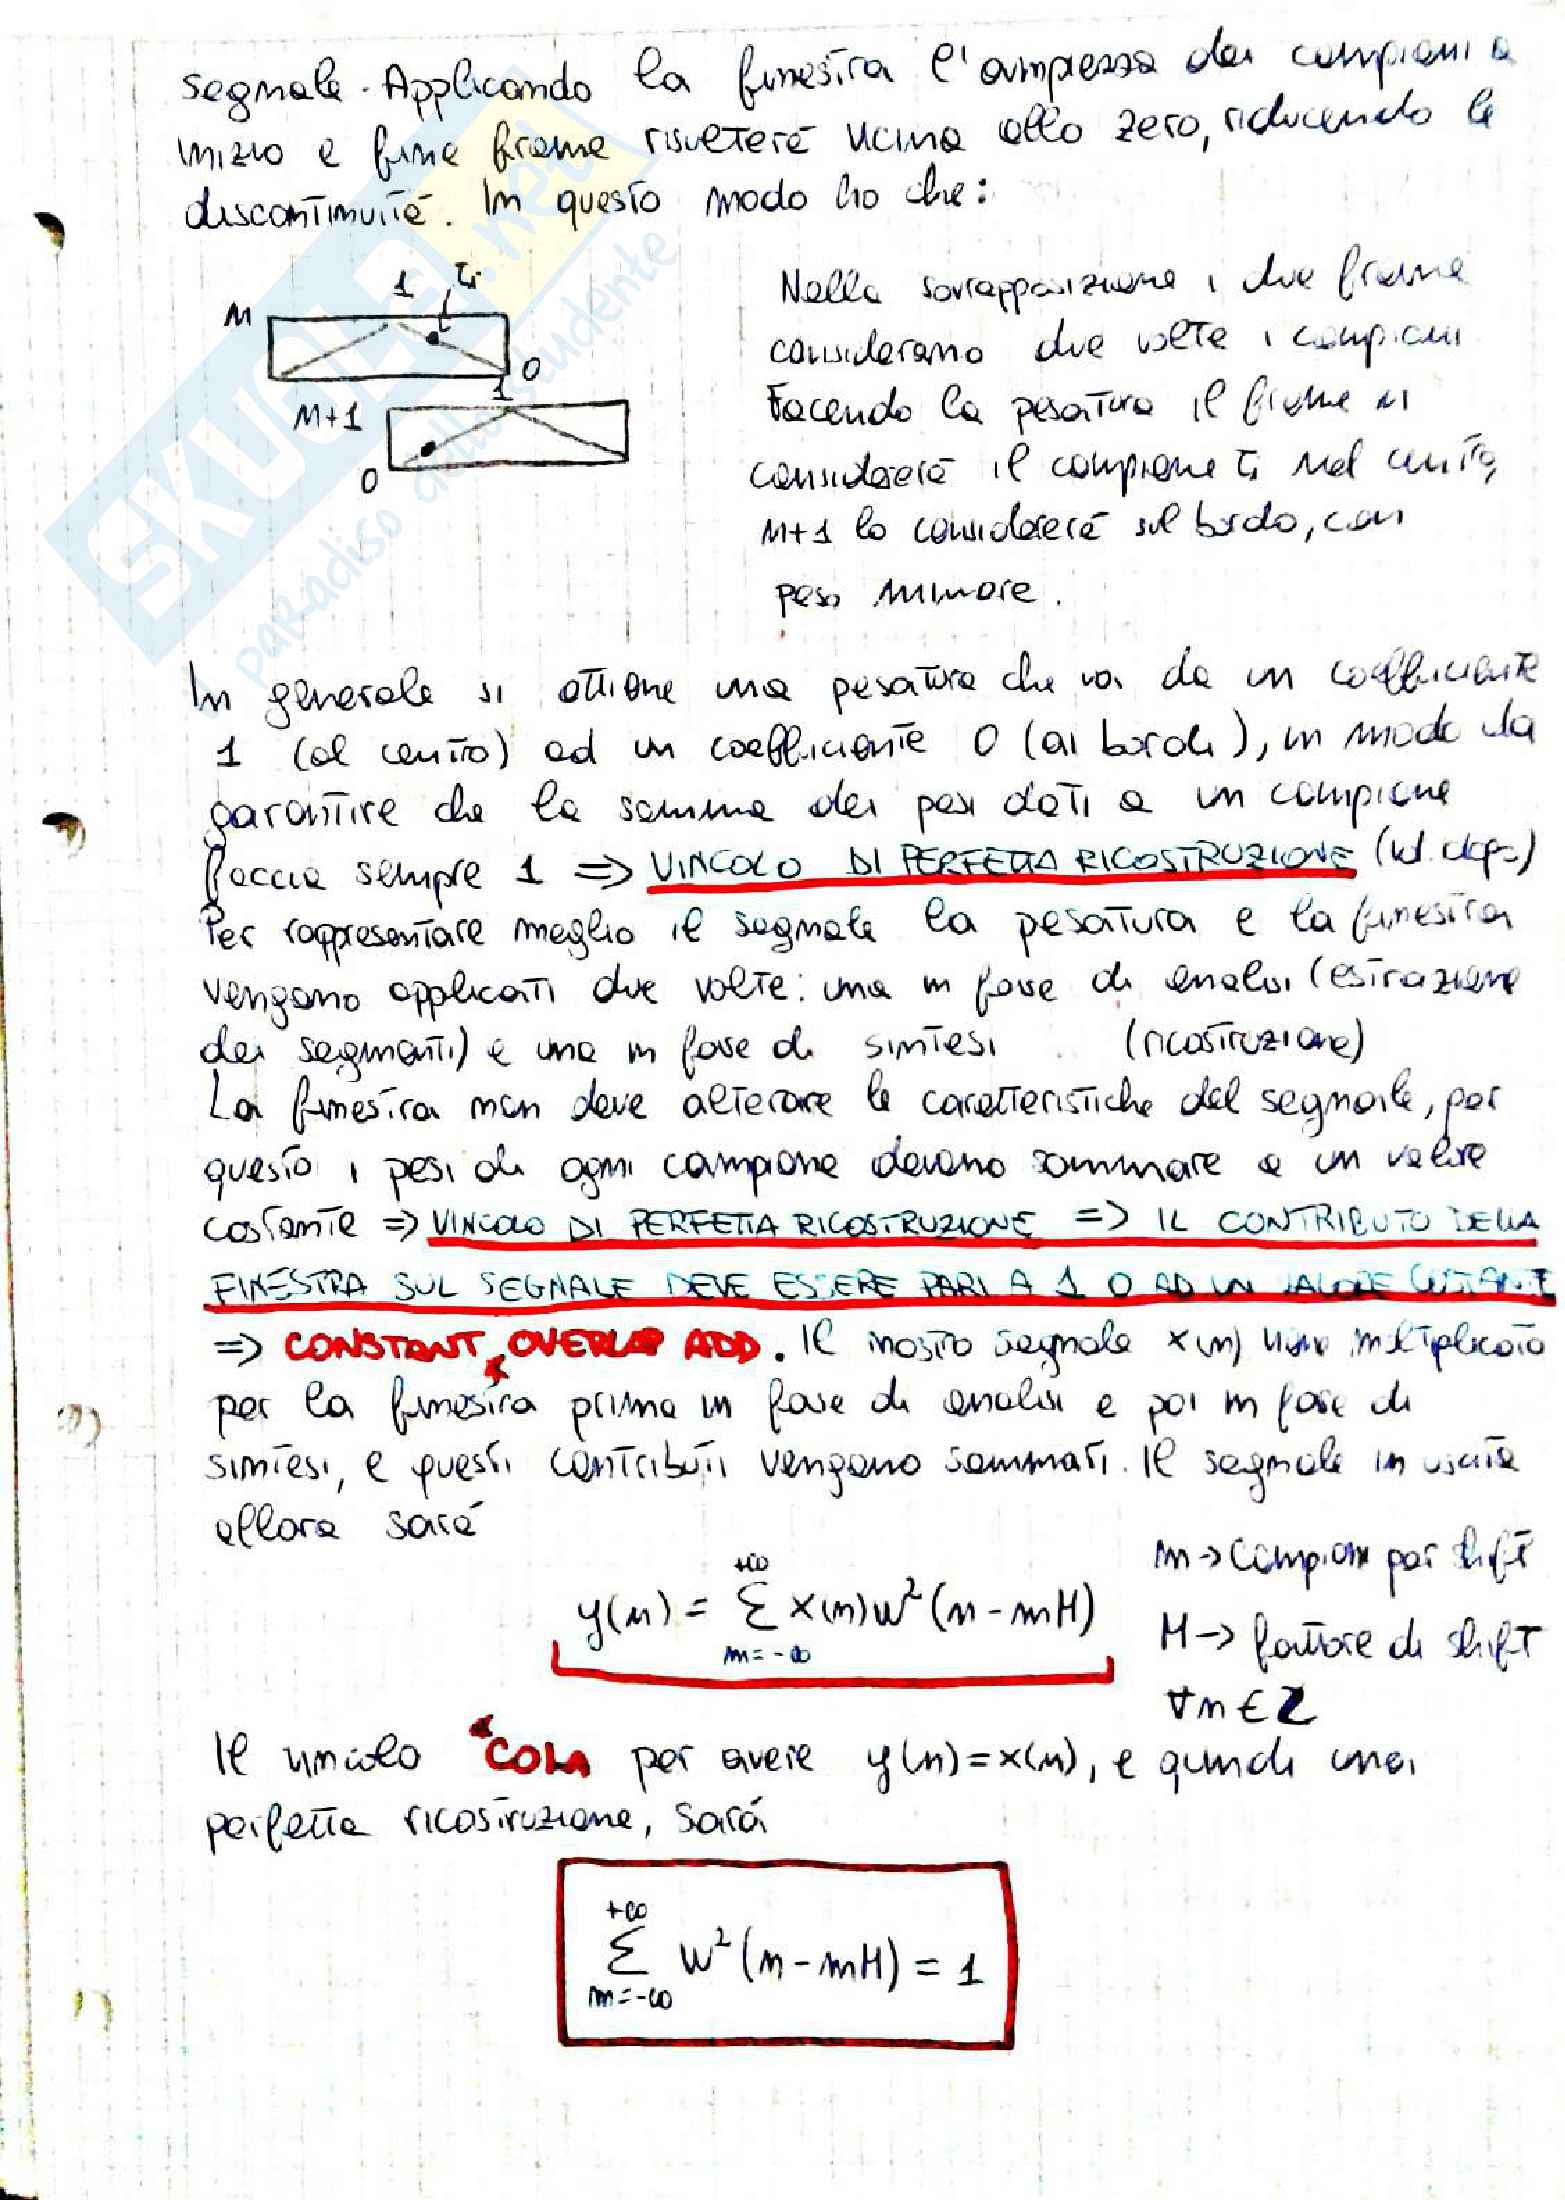 segnale. Applicando la finestra l'ampiezza dei campioni a
inizio e fine frame risulterà vicina allo zero, riducendo le
discontinuità. In questo modo ho che:
1 ti
n
0
n+1 1
0
Nella sovrapposizione i due frame
considerano due volte i campioni
Facendo la pesatura il frame n
considererà il campione ti nel centro,
n+1 lo considererà sul bordo, con
peso minore.
In generale si ottiene una pesatura che va da un coefficiente
1 (al centro) ad un coefficiente 0 (ai bordi), in modo da
garantire che la somma dei pesi dati a un campione
faccia sempre 1 => VINCOLO DI PERFETTA RICOSTRUZIONE
Per rappresentare meglio il segnale la pesatura e la finestra
vengono applicati due volte: una in fase di analisi (estrazione
dei segmenti) e una in fase di sintesi (ricostruzione)
La finestra non deve alterare le caratteristiche del segnale, per
questo i pesi di ogni campione devono sommare a un valore
costante => VINCOLO DI PERFETTA RICOSTRUZIONE => IL CONTRIBUTO DELLA
FINESTRA SUL SEGNALE DEVE ESSERE PARI A 1 O AD UN VALORE COSTANTE
=> CONSTANT OVERLAP ADD. Il nostro segnale x(n) viene moltiplicato
per la finestra prima in fase di analisi e poi in fase di
sintesi, e questi contributi vengono sommati. Il segnale in uscita
allora sarà
y(n) = +∞ Σ m=-∞ x(n)w²(n-mH)
m -> campioni per shift
H -> fattore di shift
∀n ∈ Z
Il vincolo COLA per avere y(n)=x(n), e quindi una
perfetta ricostruzione, sarà
+∞ Σ m=-∞ w²(n-mH) = 1
SKUOLA.net
il paradiso dello studente